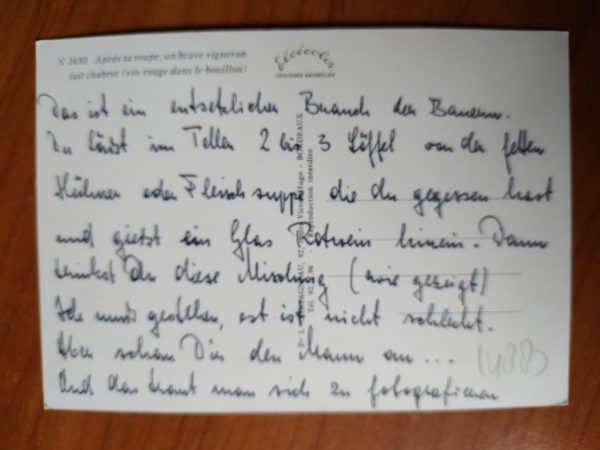 N 1650 Après sa soupe, un brave vigneron
fait chabrot (vin rouge dans le bouillon)
COULEURS NATURELLES
Das ist ein entsetzlicher Brauch der Bauern.
Du läßt im Teller 2 bis 3 Löffel von der fetten
Hühner oder Fleischsuppe die du gegessen hast
und gießt ein Glas Rotwein hinein. Dann
trinkst Du diese Mischung (wie gezeigt)
Ich muß gestehen, est ist nicht schlecht.
Aber schau Dir den Mann an ...
Und das traut man sich zu fotografieren
1488
BORDEAUX
Reproduction interdite